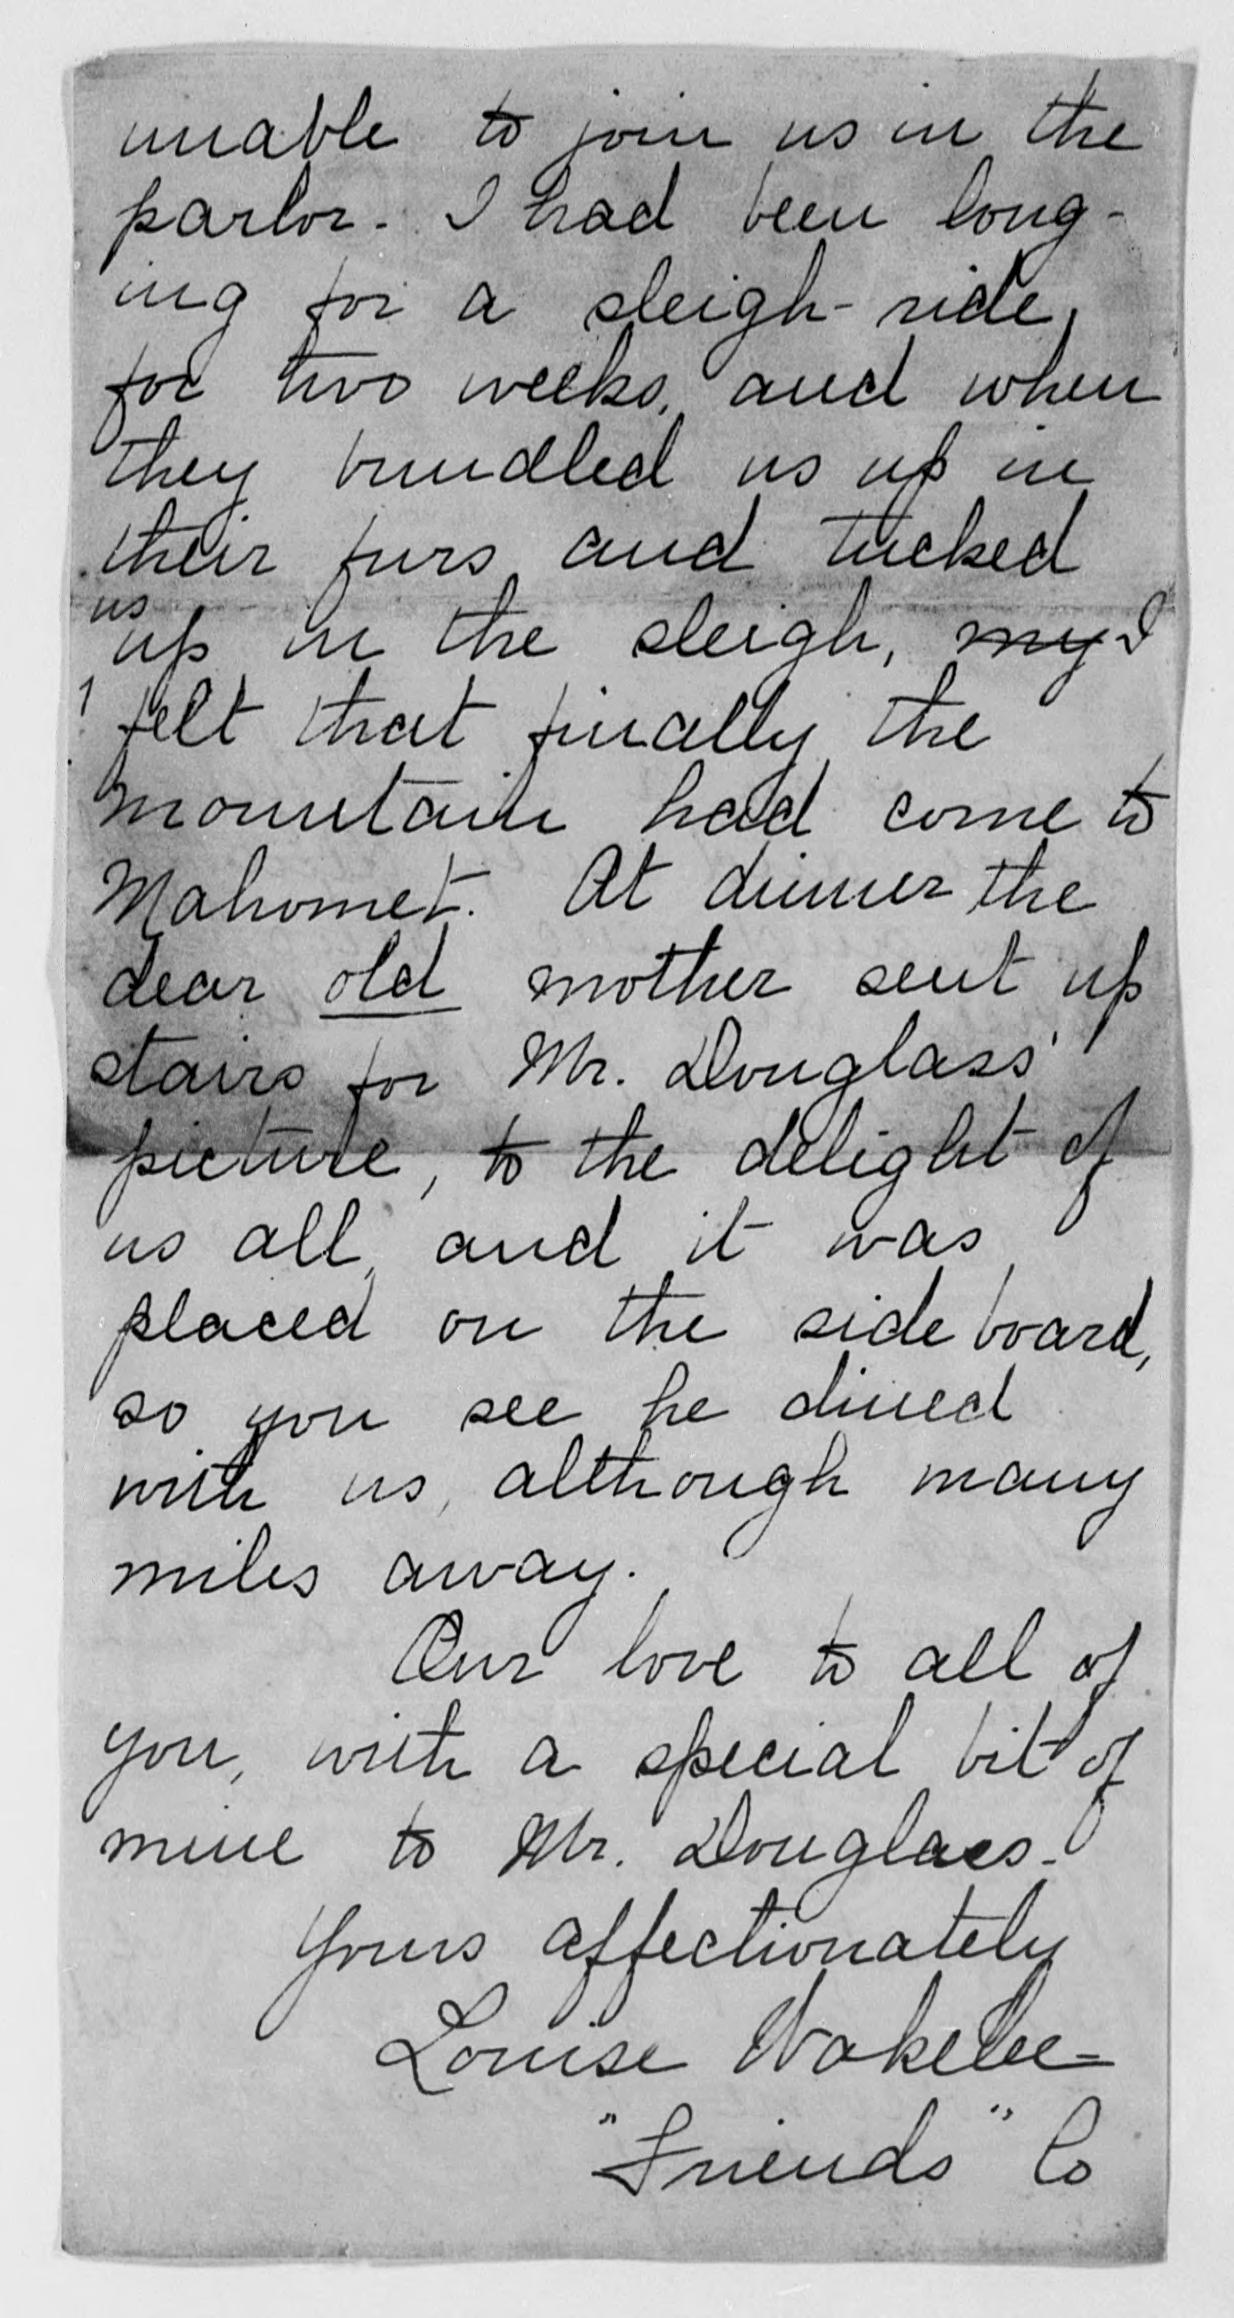 unable to join us in the
parlor. I had been long-
ing for a sleigh-ride,
for two weeks, and when
they bundled us up in
their furs and tucked
us
up in the sleigh, my I
felt that finally the
mountain had come to
Mahomet. At dinner the
dear old mother sent up
stairs for Mr. Douglass'
picture, to the delight of
us all, and it was
placed on the side board,
so you see he dined
with us, although many
miles away.
Our love to all of
you, with a special bit of
mine to Mr. Douglass.
Yours affectionately
Louise Wakelee-
"Friends" Co